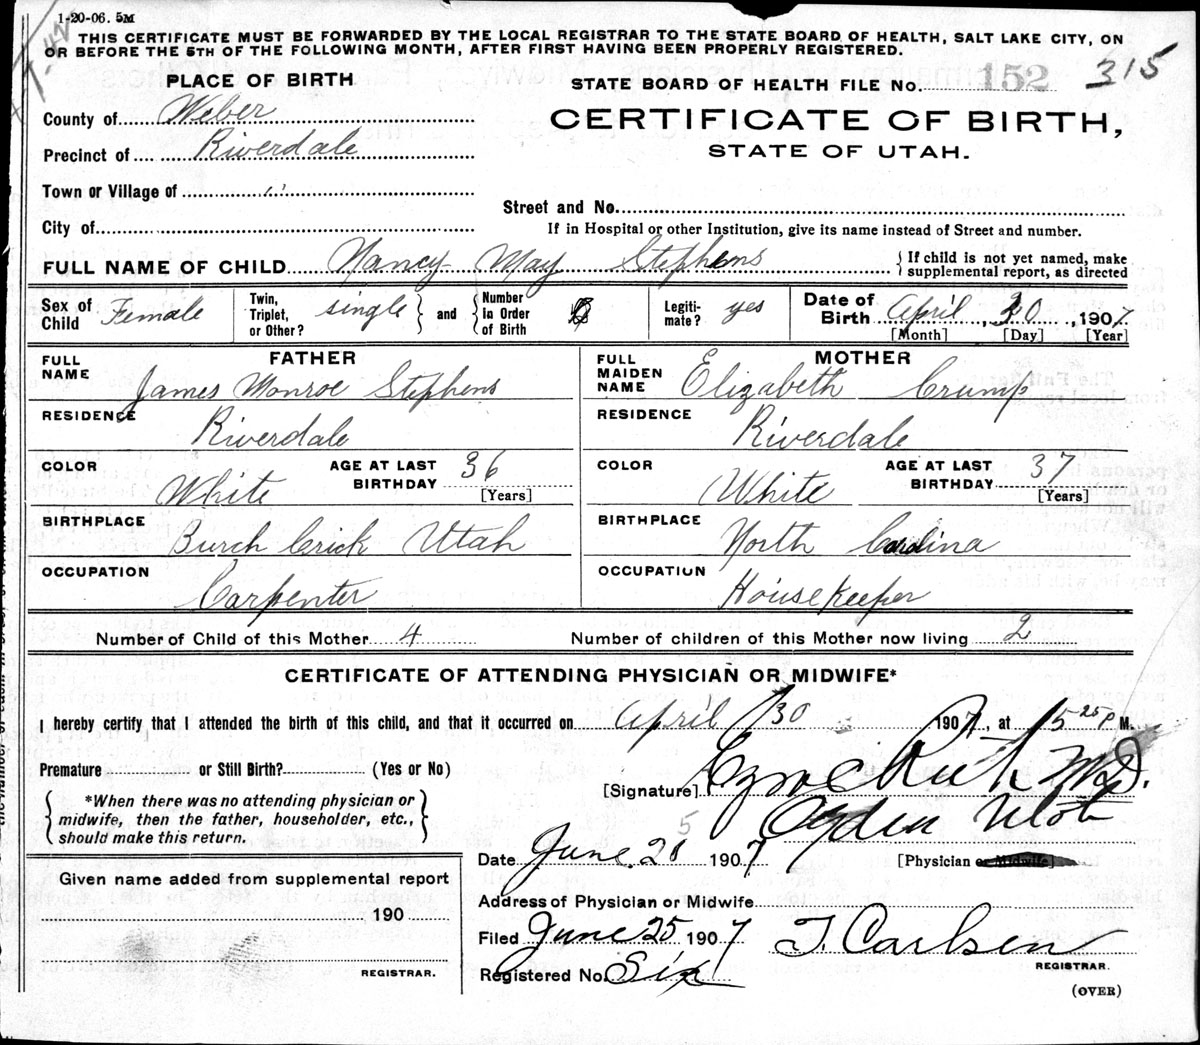 1-20-06. 5M
THIS CERTIFICATE MUST BE FORWARDED BY THE LOCAL REGISTRAR TO THE STATE BOARD OF HEALTH, SALT LAKE CITY, ON
OR BEFORE THE 5TH OF THE FOLLOWING MONTH, AFTER FIRST HAVING BEEN PROPERLY REGISTERED.
PLACE OF BIRTH
STATE BOARD OF HEALTH FILE No. 152 315
County of Weber
CERTIFICATE OF BIRTH,
Precinct of Riverdale
STATE OF UTAH.
Town or Village of "
Street and No.
City of
If in Hospital or other Institution, give its name instead of Street and number.
FULL NAME OF CHILD Nancy May Stephens { If child is not yet named, make supplemental report, as directed
Sex of Child Female Twin, Triplet, or Other? single } and { Number in Order of Birth Legiti-mate? yes Date of Birth April 30, 1907
[Month] [Day] [Year]
FATHER
MOTHER
FULL NAME James Monroe Stephens
FULL MAIDEN NAME Elizabeth Crump
RESIDENCE Riverdale
RESIDENCE Riverdale
COLOR White AGE AT LAST BIRTHDAY 36 [Years]
COLOR White AGE AT LAST BIRTHDAY 37 [Years]
BIRTHPLACE Burch Crick Utah
BIRTHPLACE North Carolina
OCCUPATION Carpenter
OCCUPATION Housekeeper
Number of Child of this Mother 4 Number of children of this Mother now living 2
CERTIFICATE OF ATTENDING PHYSICIAN OR MIDWIFE*
I hereby certify that I attended the birth of this child, and that it occurred on April 30 1907, at 5 25 P M.
Premature or Still Birth? (Yes or No)
[Signature] M.D.
{ *When there was no attending physician or
midwife, then the father, householder, etc.,
should make this return. }
Ogden Utah
Date June 25 1907 [Physician or Midwife]
Given name added from supplemental report
Address of Physician or Midwife
190
Filed June 25 1907 J. Carlsen
REGISTRAR.
REGISTRAR.
Registered No. Six
(OVER)